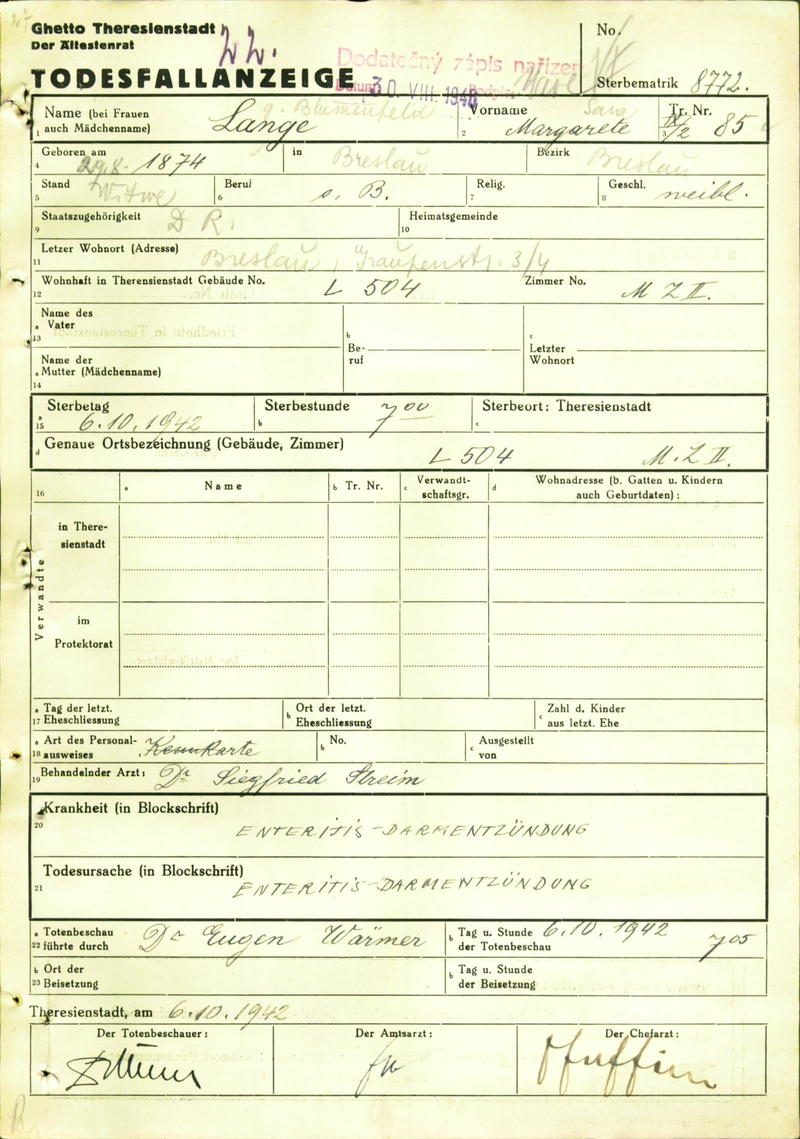 Ghetto Theresienstadt
Der Ältestenrat
No.
Dodatečný zápis nařízen
Datum 30. VIII. 1948
TODESFALLANZEIGE
Sterbematrik 8772.
Name (bei Frauen auch Mädchenname) Lange g. Blumenfeld
1
Vorname Sara Margarete
2
Tr. Nr. IX/2 85
3
Geboren am 29.8. 1874 in Breslau Bezirk Breslau
4
Stand Witwe Beruf o. B. Relig. Geschl. weibl.
5 6 7 8
Staatszugehörigkeit D R. Heimatsgemeinde
9 10
Letzer Wohnort (Adresse) Breslau, Graupenstr. 3/4
11
Wohnhaft in Theresienstadt Gebäude No. L 504 Zimmer No. M Z II.
12
Name des
a Vater
13
b Beruf
c Letzter Wohnort
Name der
a Mutter (Mädchenname)
14
a Sterbetag 6.10.1942 b Sterbestunde 7 00 c Sterbeort: Theresienstadt
15
d Genaue Ortsbezeichnung (Gebäude, Zimmer) L 504 M. Z II.
16 a Name b Tr. Nr. c Verwandtschaftsgr. d Wohnadresse (b. Gatten u. Kindern auch Geburtdaten) :
Verwandte
in Theresienstadt
im Protektorat
a Tag der letzt. b Ort der letzt. c Zahl d. Kinder
17 Eheschliessung Eheschliessung aus letzt. Ehe
a Art des Personal- Kennkarte b No. c Ausgestellt
18 ausweises von
19 Behandelnder Arzt: Dr Siegfried Streim
Krankheit (in Blockschrift)
20
ENTERITIS-DARMENTZÜNDUNG
Todesursache (in Blockschrift)
21
ENTERITIS-DARMENTZÜNDUNG
a Totenbeschau Dr Eugen Wärmer b Tag u. Stunde 6.10.1942 7 05
22 führte durch der Totenbeschau
b Ort der b Tag u. Stunde
23 Beisetzung der Beisetzung
Theresienstadt, am 6.10.1942
Der Totenbeschauer: Der Amtsarzt: Der Chefarzt: